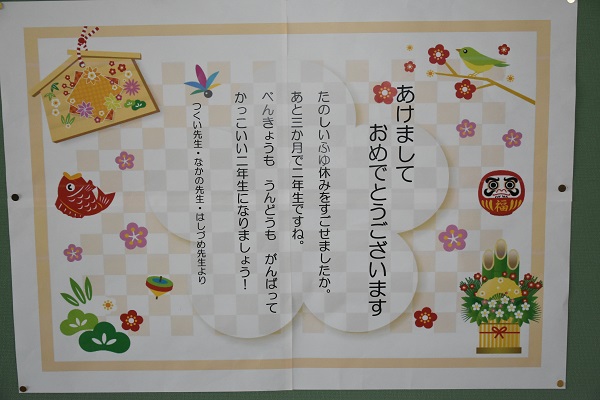 あけまして
おめでとうございます
たのしいふゆ休みをすごせましたか。
あと三か月で二年生ですね。
べんきょうも　うんどうも　がんばって
かっこいい二年生になりましょう！
つくい先生・なかの先生・はしづめ先生より
福